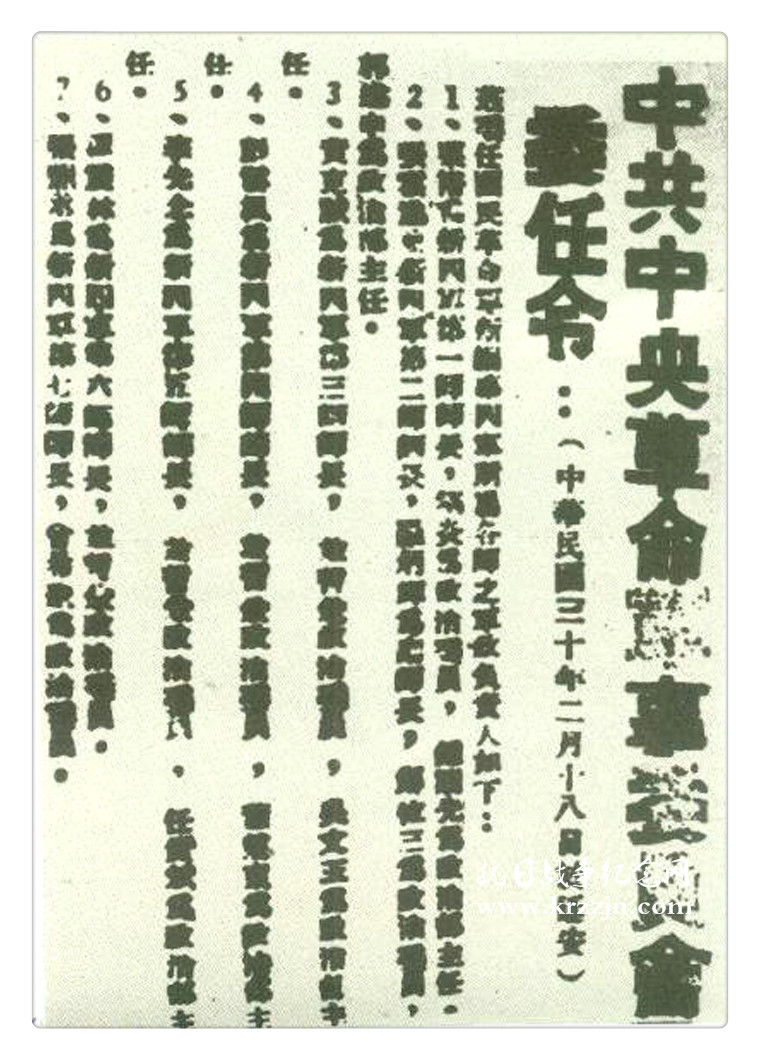 中共中央革命軍事委員會
委任令：（中華民國三十年二月十八日 延安）
茲委任國民革命軍新編第四軍所屬各師之軍政負責人如下：
1、粟裕 新四軍第一師師長，劉炎為政治委員，鍾期光為政治部主任。
2、張雲逸 新四軍第二師師長，羅炳輝為副師長，鄭位三為政治委員，
郭述申為政治部主任。
3、黃克誠為新四軍第三師師長，並暫兼政治委員，吳文玉為政治部主
任。
4、彭雪楓為新四軍第四師師長，並暫兼政治委員，蕭望東為政治部主
任。
5、李先念為新四軍第五師師長，並暫兼政治委員，任質斌為政治部主
任。
6、譚震林為新四軍第六師師長，並暫兼政治委員。
7、張鼎丞為新四軍第七師師長，曾希聖為政治委員。
抗日战争纪念网
www.krzzjn.com